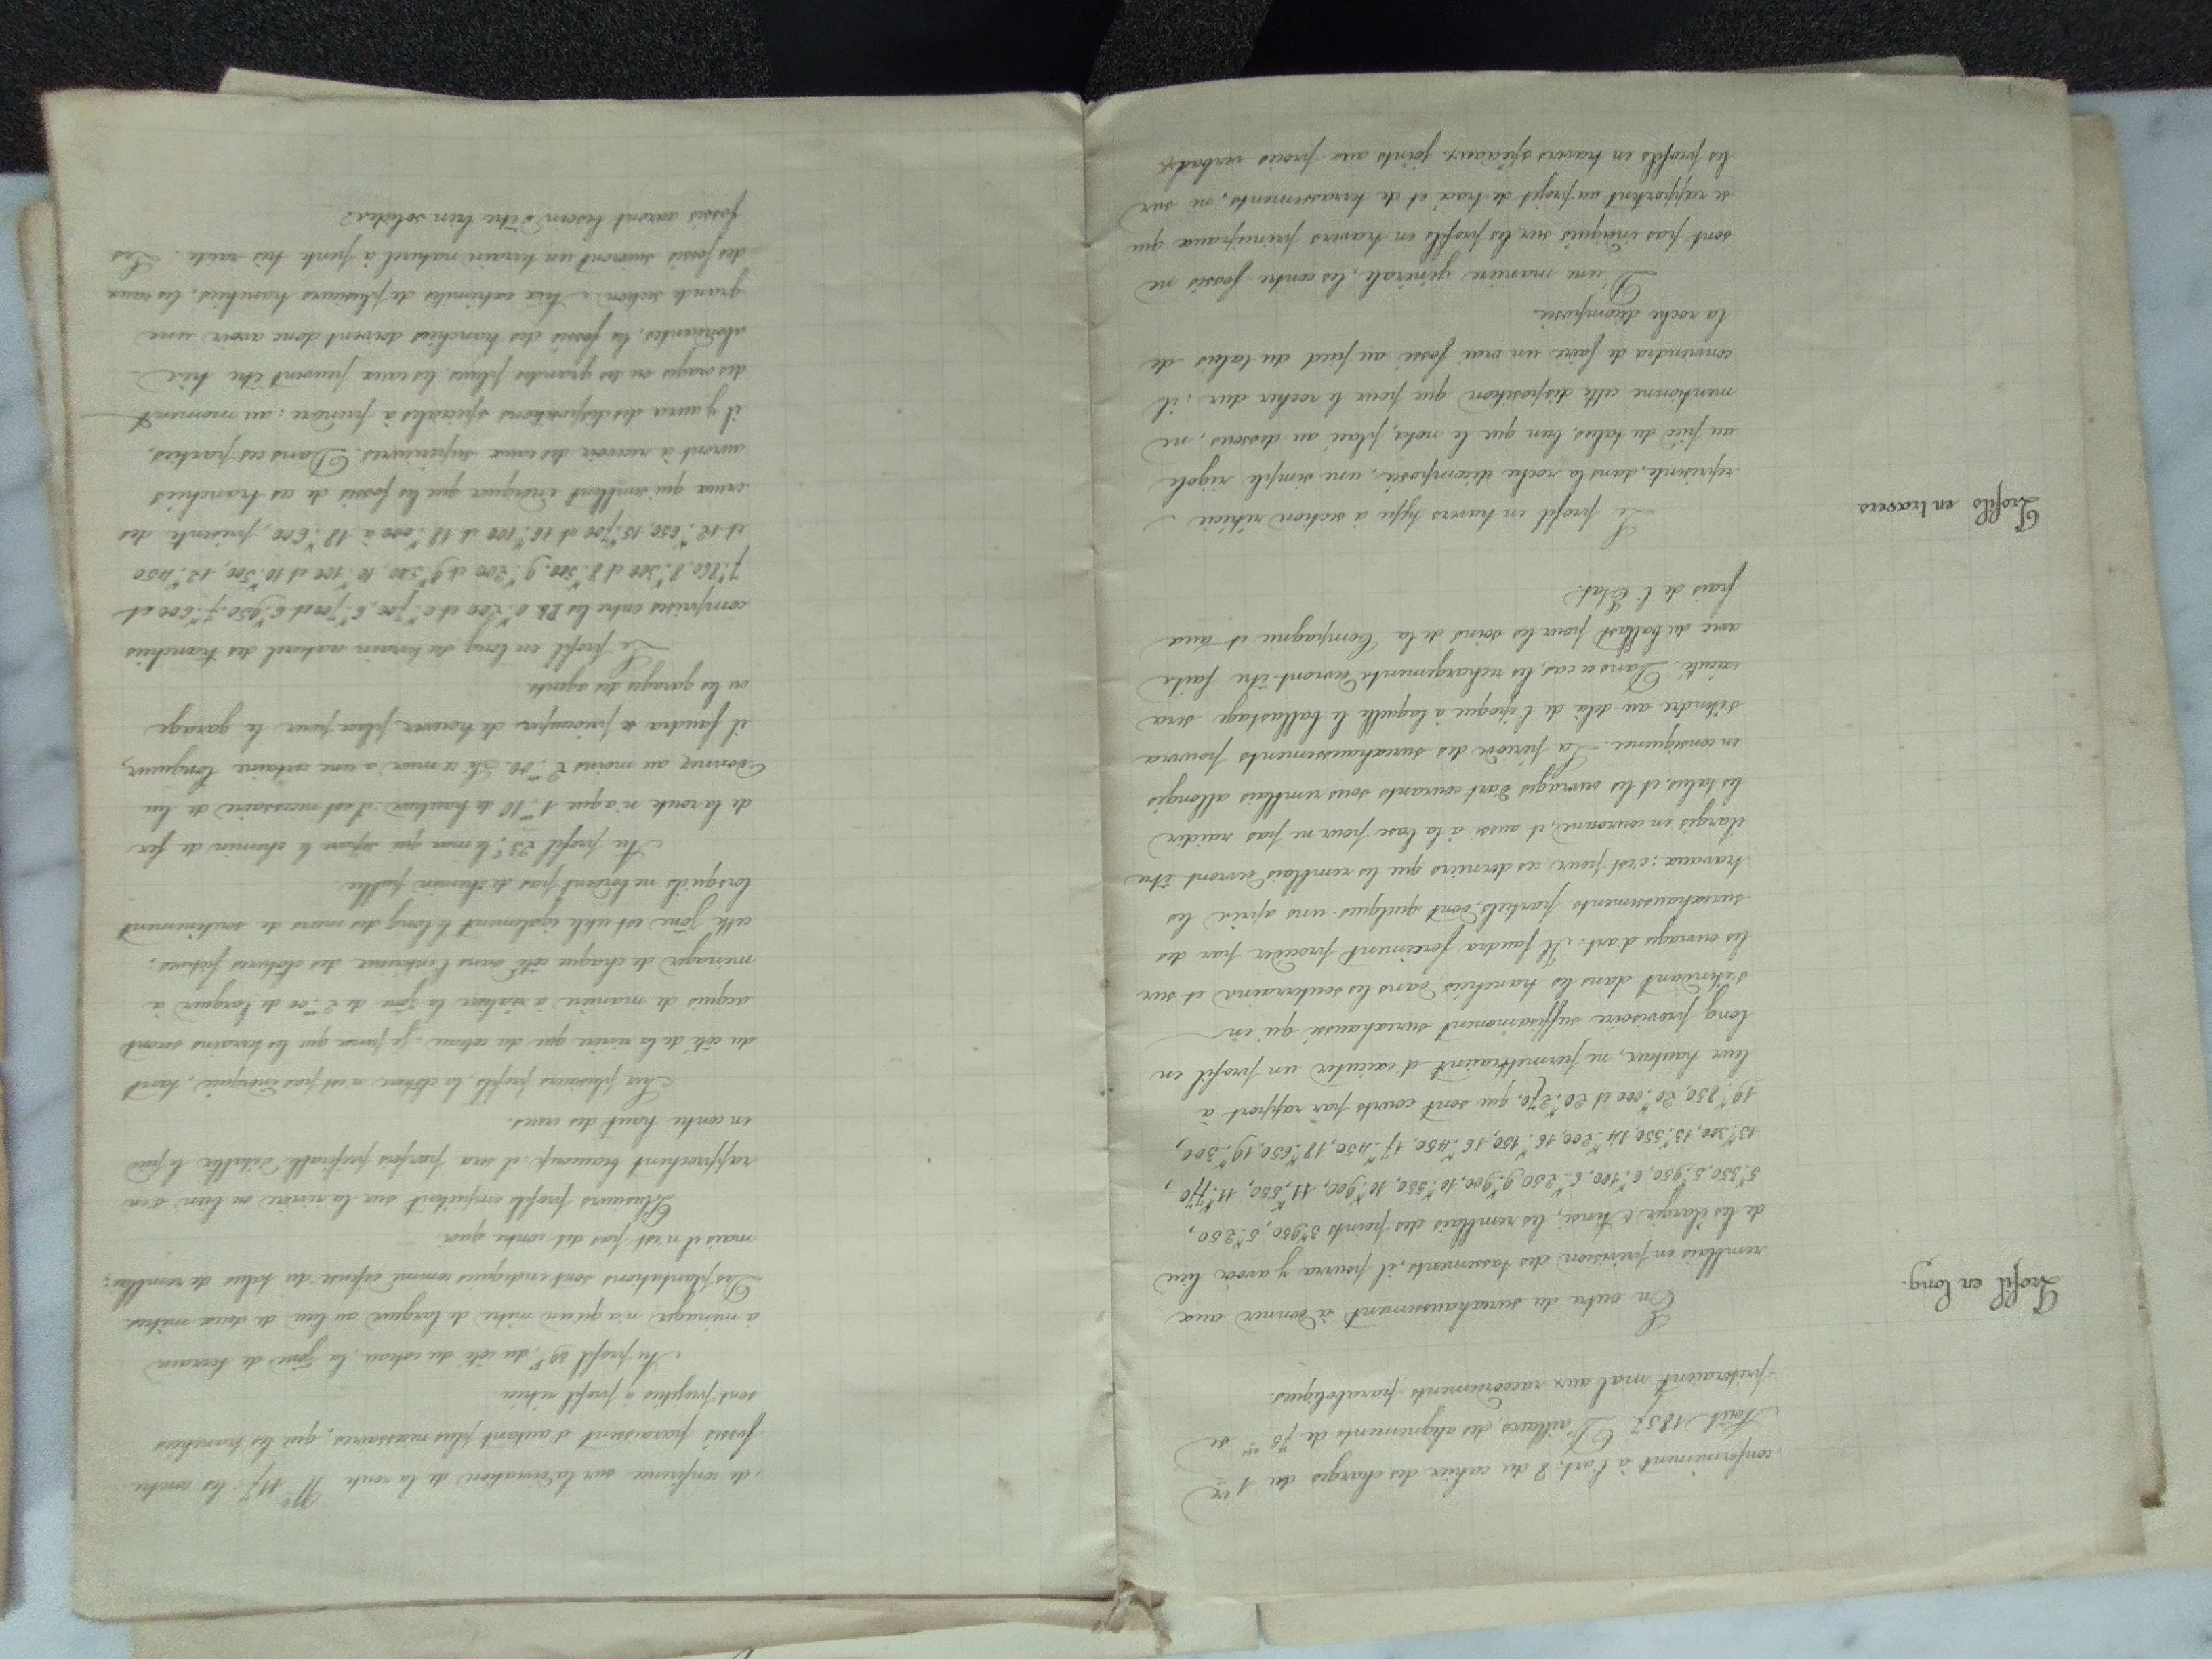 conformément à l'art. 8 du cahier des charges du 1er
Août 1857. D'ailleurs, des alignements de 75m se
prêteraient mal aux raccordements paraboliques.
Profil en long.
En outre du surexhaussement à donner aux
remblais en prévision des tassements, il pourra y avoir lieu
de les élargir. Ainsi, les remblais des points 3K950, 5K250,
5K350, 5K950, 6K100, 6K250, 9K900, 10K550, 10K900, 11K550, 11K770,
13K300, 13K550, 14K200, 16K150, 16K450, 17K450, 18K650, 19K300,
19K850, 20K000 et 20K270, qui sont courts par rapport à
leur hauteur, ne permettraient d'exécuter un profil en
long provisoire suffisamment surexhaussé qu'en
s'étendant dans les tranchées, dans les souterrains et sur
les ouvrages d'art. Il faudra forcément procéder par des
surexhaussements partiels, dont quelques-uns après les
travaux ; c'est pour ces derniers que les remblais devront être
élargis en couronne, et aussi à la base pour ne pas raidir
les talus, et les ouvrages d'art courants sous remblais allongés
en conséquence. La période des surexhaussements pourra
s'étendre au-delà de l'époque à laquelle le ballastage sera
exécuté. Dans ce cas, les rechargements devront être faits
avec du ballast pour les soins de la Compagnie et aux
frais de l'Etat.
Profils en travers
Le profil en travers type à section rétrécie
représente, dans la roche décomposée, une simple rigole
au pied du talus, bien que le nota, placé au dessous, ne
mentionne cette disposition que pour le rocher dur ; il
conviendra de faire un vrai fossé au pied du talus de
la roche décomposée.
D'une manière générale, les contre fossés ne
sont pas indiqués sur les profils en travers principaux qui
se rapportent au projet de tracé et de terrassements, ni sur
les profils en travers spéciaux joints aux procès verbaux
de conférence sur la déviation de la route No 117 ; les contre
fossés paraissent d'autant plus nécessaires, que les tranchées
sont projetées à profil rétréci.
Au profil 39P, du côté du coteau, la zône de terrain
à ménager n'a qu'un mètre de largeur au lieu de deux mètres.
Des plantations sont indiquées comme défense du talus de remblai ;
mais il n'est pas dit contre quoi.
Plusieurs profils empiètent sur la rivière ou bien s'en
rapprochent beaucoup ; il sera parfois préférable d'établir le pied
en contre haut des crues.
Sur plusieurs profils, la clôture n'est pas indiquée, tant
du côté de la rivière que du coteau. Je pense que les terrains seront
acquis de manière à réaliser la zône de 2m00 de largeur à
ménager de chaque côté dans l'intérieur des clôtures fictives ;
cette zône est utile également le long des murs de soutènement
lorsqu'ils ne bordent pas de chemin public.
Au profil 23e, le mur qui sépare le chemin de fer
de la route n'a que 1m10 de hauteur : il est nécessaire de lui
donner au moins 2m00. Si ce mur a une certaine longueur,
il faudra se préoccuper de trouver place pour le garage
ou les garages des agents.
Le profil en long du terrain naturel des tranchées
comprises entre les Pts 0K200 et 0K700, 6K700 et 6K950, 7K600 et
7K860, 8K300 et 8K500, 9K200 et 9K520, 10K100 et 10K500, 12K450
et 12K650, 15K700 et 16K100 et 18K000 à 18K600, présente des
creux qui semblent indiquer que les fossés de ces tranchées
auront à recevoir des eaux supérieures. Dans ces parties,
il y aura des dispositions spéciales à prendre : au moment
des orages ou des grandes pluies, les eaux peuvent être très
abondantes, les fossés des tranchées doivent donc avoir une
grande section. Aux extrémités de plusieurs tranchées, les eaux
des fossés suivront un terrain naturel à pente très raide. Les
fossés auront besoin d'être bien solides.